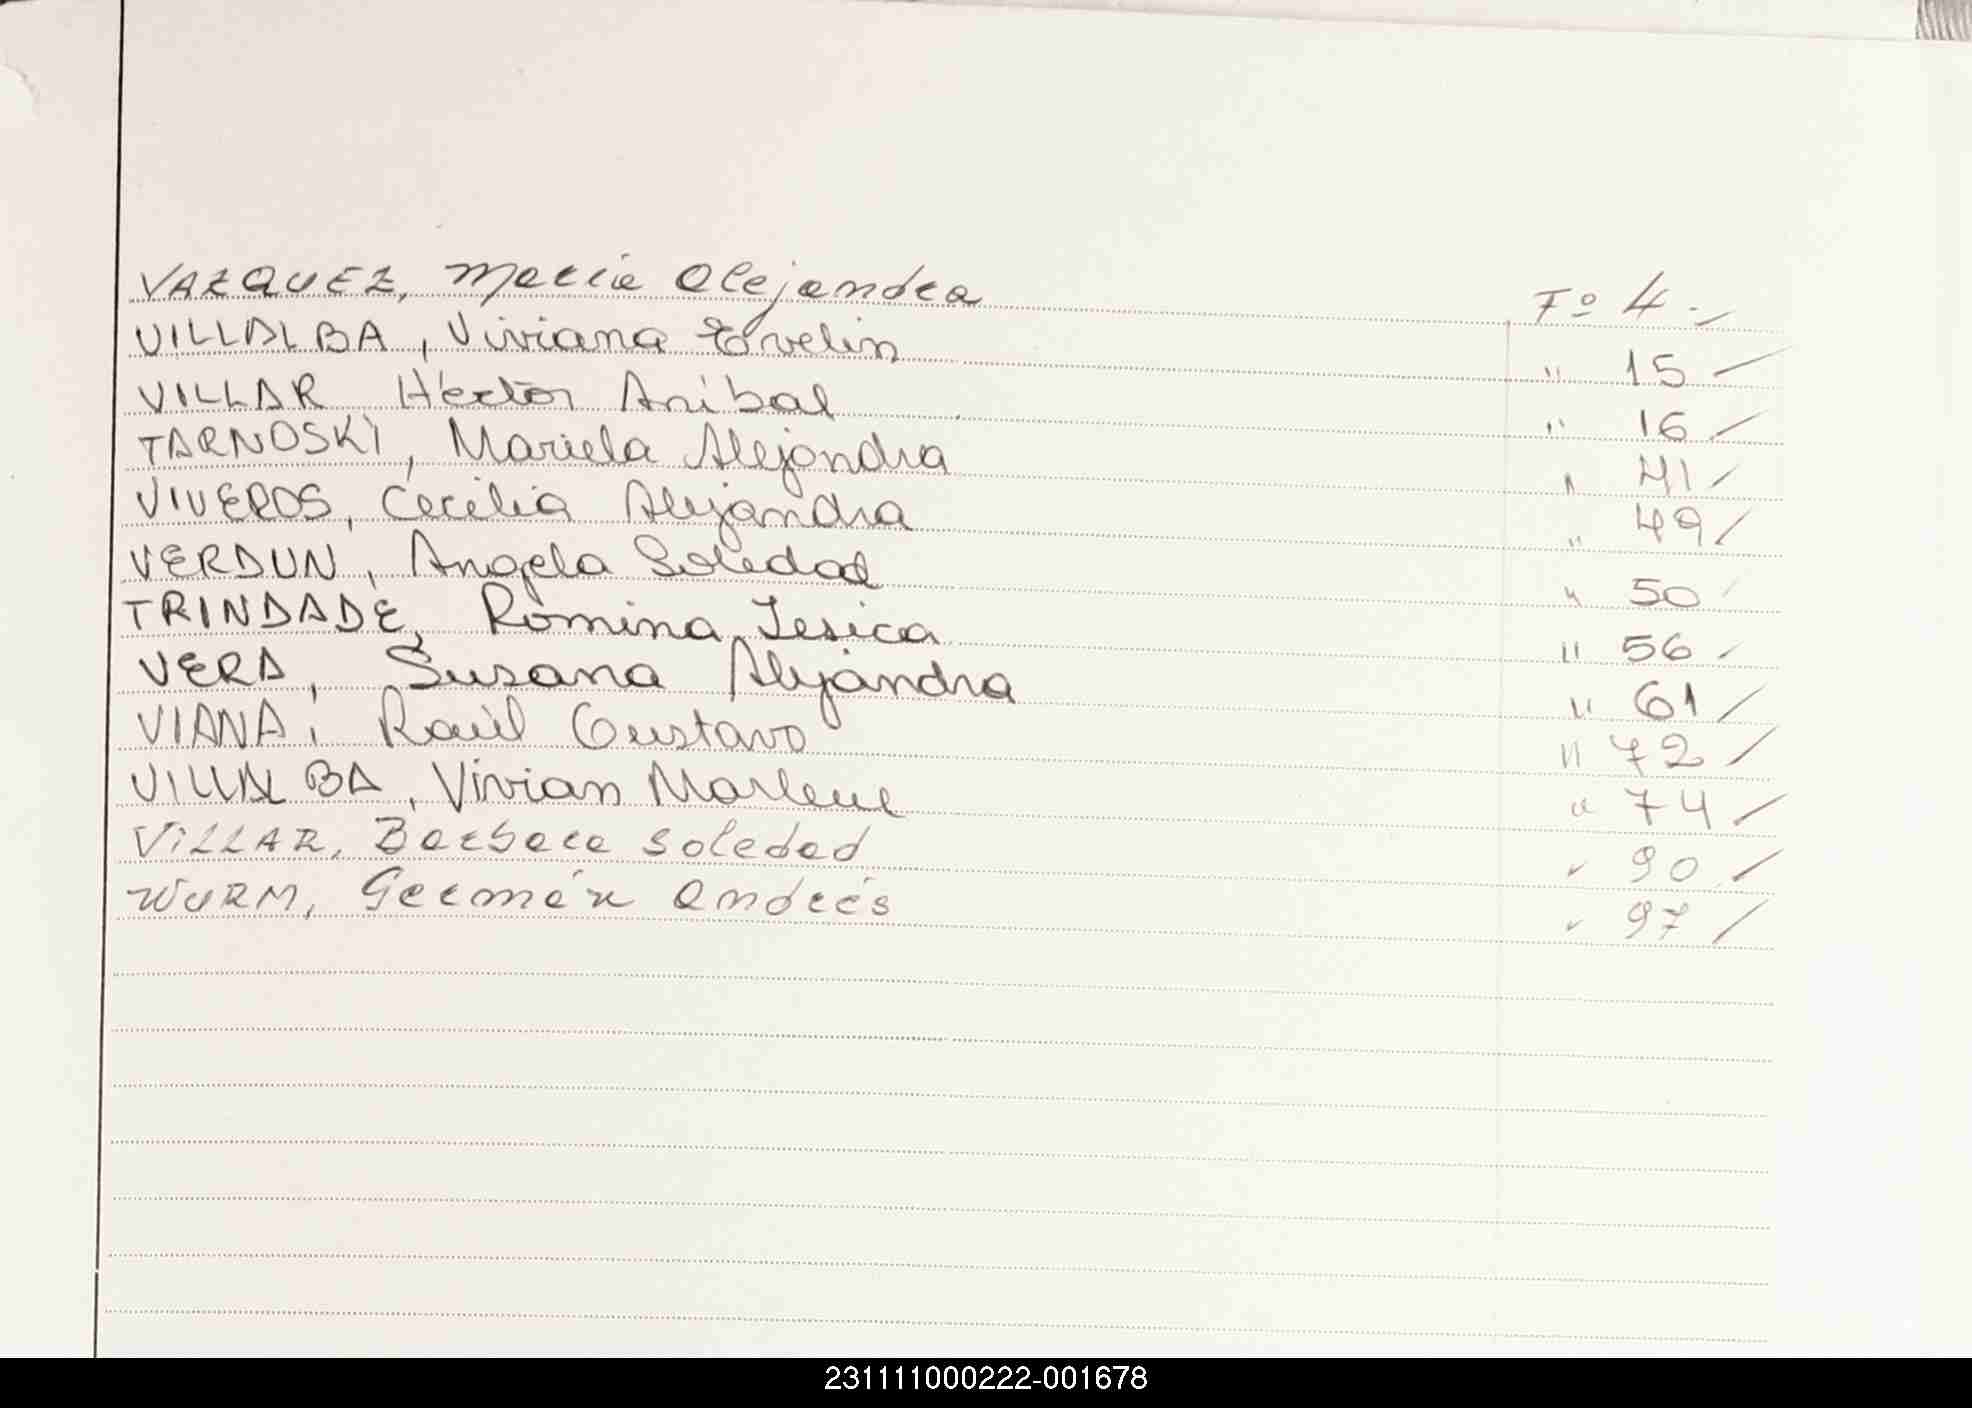 VAZQUEZ, Maria Alejandra Fº 4.-
VILLALBA, Viviana Evelin " 15
VILLAR Héctor Anibal " 16
TARNOSKI, Mariela Alejandra " 41
VIVEROS, Cecilia Alejandra " 49
VERDUN, Angela Soledad " 50
TRINDADE, Romina Jesica " 56
VERA, Susana Alejandra " 61
VIANA, Raúl Gustavo " 72
VILLALBA, Vivian Marlene " 74
VILLAR, Barbara Soledad " 90
WURM, Germán Andrés " 97
231111000222-001678